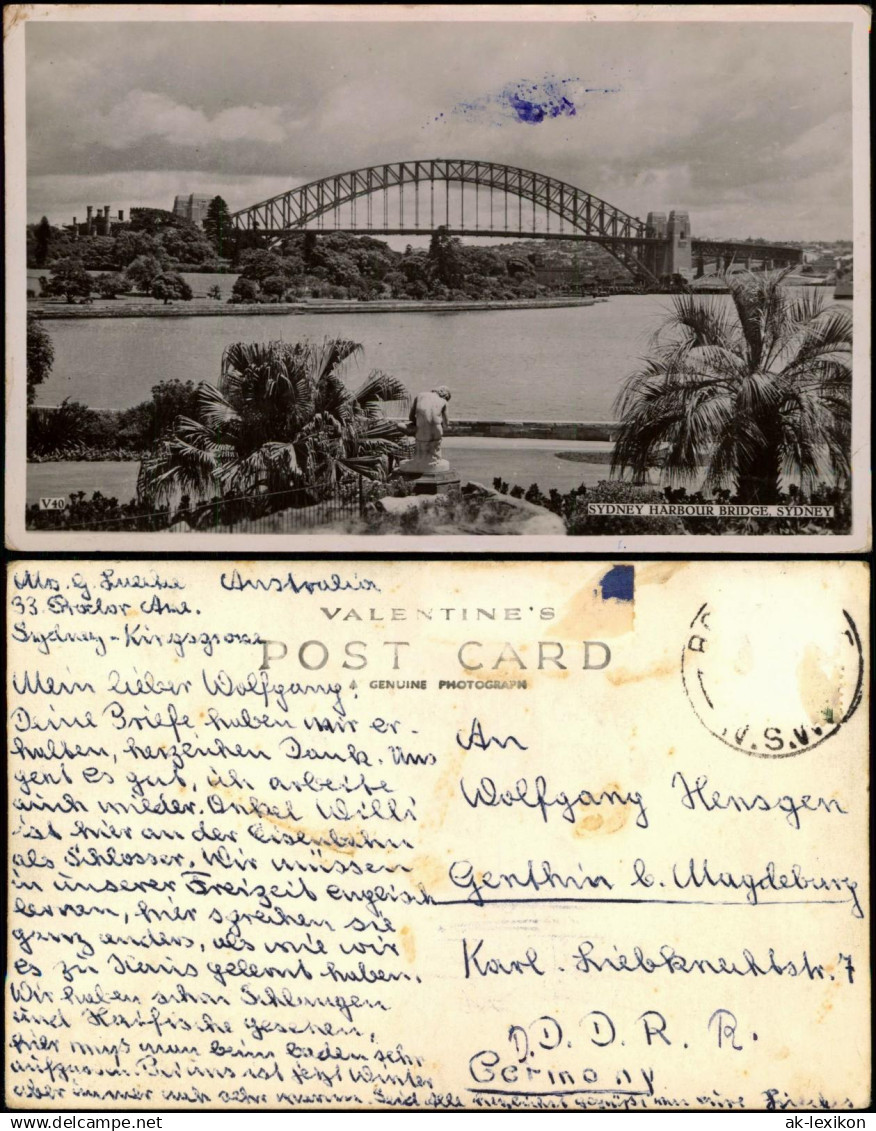 V40
SYDNEY HARBOUR BRIDGE, SYDNEY
Mrs. G. Australia
33.
Sydney - Kingsgrove
VALENTINE'S
POST CARD
A GENUINE PHOTOGRAPH
N.S.W
Mein lieber Wolfgang!
Deine Briefe haben wir er-
halten, herzlichen Dank. Uns
geht es gut, ich arbeite
auch wieder. Onkel Willi
ist hier an der Eisenbahn
als Schlosser. Wir müssen
in unserer Freizeit englisch
lernen, hier sprechen sie
ganz anders, als wie wir
es zu Haus gelernt haben.
Wir haben schon Schlangen
und Haifische gesehen,
hier muß man beim baden sehr
aufpassen. Bei uns ist jetzt Winter
aber immer noch sehr warm. Seid alle herzlichst gegrüßt von
An
Wolfgang Hensgen
Genthin b. Magdeburg
Karl-Liebknechtstr. 7
D.D.R.
Germany
ak-lexikon
© ak-lexikon.de